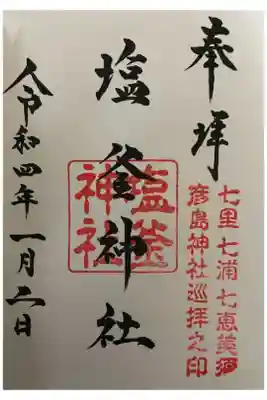 奉拝
七里七浦七恵美須
彦島神社巡拝之印
塩釜神社
塩釜
神社
令和四年一月二日